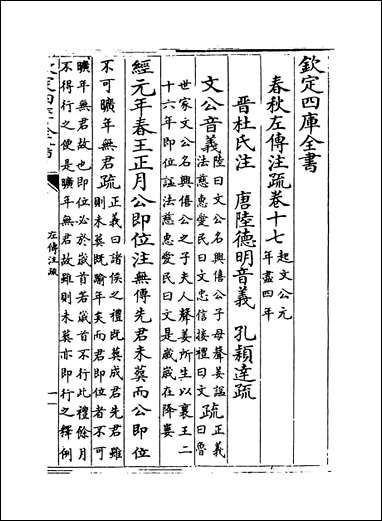 欽定四庫全書
春秋左傳注疏卷十七起文公元
年盡四年
晉杜氏注　唐陸德明音義　孔穎達疏
文公音義陸曰文公名興僖公子母聲姜諡
法慈惠愛民曰文忠信接禮曰文疏正義
曰魯
世家文公名興僖公之子夫人聲姜所生以襄王二
十六年即位諡法慈惠愛民曰文是歲歲在降婁
經元年春王正月公即位注無傳先君未葬而公即位
不可曠年無君疏正義曰諸侯之禮既葬成君先君雖
則未葬既踰年矣而君即位者不可
曠年無君故也即位必於歲首若歲首不行此禮餘月
不得行之使是曠年無君故雖則未葬亦即行之釋例
欽定四庫全書
左傳注疏
一